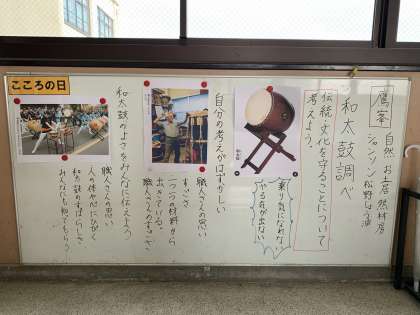 こころの日
鷹峯
自然 お土居 然林房
和太鼓調べ
伝統文化を守ることについて
考えよう。
乗り気になれない
やる気が出ない
自分の考えがはずかしい
職人さんの思い
すごさ
一つ一つの材料から
出来ている。
職人さんのすごさ
和太鼓のよさをみんなに伝えよう
職人さんの思い
人の体や心にひびく
和太鼓のすばらしさ
みんなにも知ってもらう